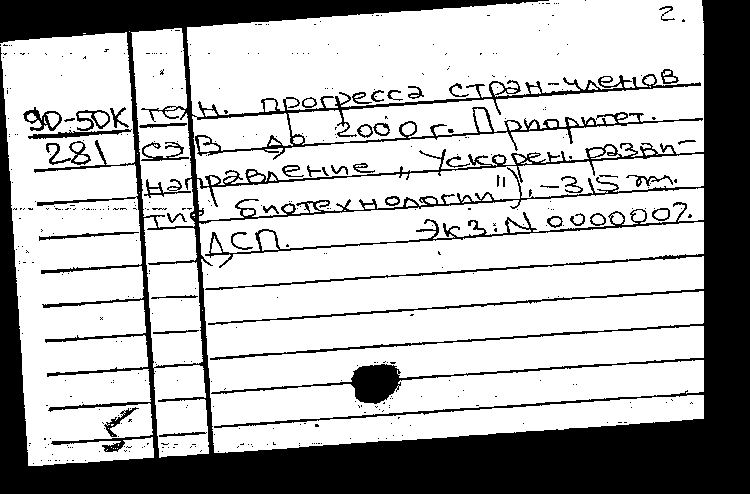 2.
90-5DK техн. прогресса стран-членов
281 СЭВ до 2000 г. Приоритет.
направление „Ускорен. разви-
тие биотехнологии"). -315 экз.
ДСП. Экз: N 0000007.